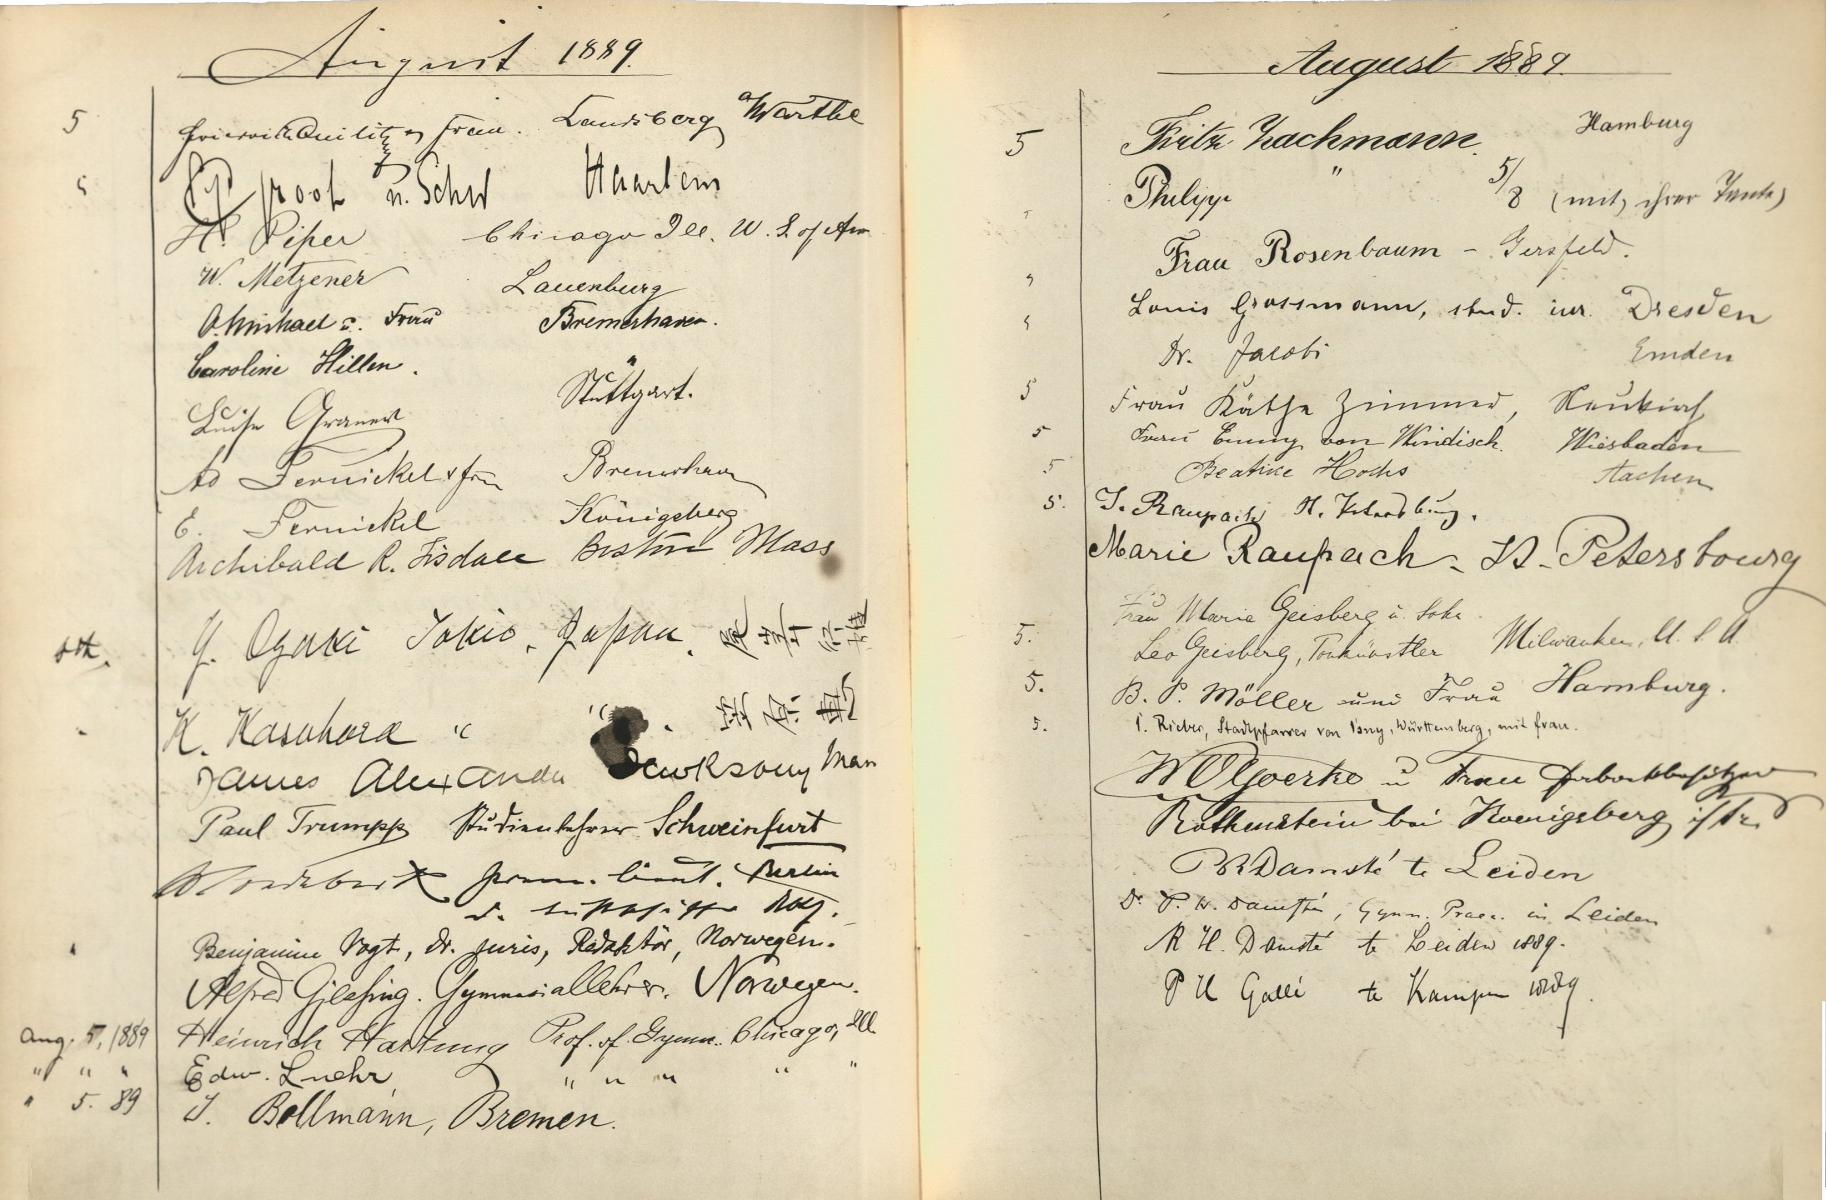 August 1889.
5 Frau. Landsberg a Warthe
5 u. Schw Haarlem
H. Piper Chicago Ill. U. S. of Am
W. Metzener Lauenburg
A. Michael u. Frau Bremerhaven.
Caroline Hillen. "
Luise Stuttgart.
Ad Fernickel & Frau Bremerhaven
E. Fernickel Königsberg
Archibald R. Tisdale Boston Mass
5th. Y. Ozaki Tokio, Japan.
K. Kasahara " "
James Alexander
Paul Trumpp Studienlehrer Schweinfurt
Prem. Lieut. Berlin
Benjamin Vogt, Dr. juris, Redaktör, Norwegen.
Alfred Gjessing. Gymnasiallehrer. Norwegen.
Aug. 5, 1889 Heinrich Hartung Prof. of Gymn. Chicago, Ill.
" " " Edw. Luehr, " " " " "
" 5. 89 J. Bollmann, Bremen.
August 1889.
5 Fritz Zachmann. Hamburg
Philipp " 5/8 (mit ihrer Tante)
" Frau Rosenbaum - Gersfeld.
" Louis Grossmann, stud. iur. Dresden
Dr. Jacobi Emden
5 Frau Käthe Zimmer, Neukirch
5 Frau Emmy von Windisch. Wiesbaden
5 Beatrice Aachen
5. J. Raupach St. Petersburg.
Marie Raupach - St. Petersbourg
Frau Marie Geisberg u. Sohn
5. Leo Geisberg, Tonkünstler Milwaukee, U. S. A
5. B. P. Möller und Frau Hamburg.
5. Rieber, Stadtpfarrer von Isny, Württemberg, mit Frau.
u Frau
Rothenstein bei Koenigsberg i/Pr.
Damsté te Leiden
Dr. P. H. Damsté, Gymn. Praec. in Leiden
R H. Damsté te Leiden 1889.
P H Gallé te Kampen 1889.